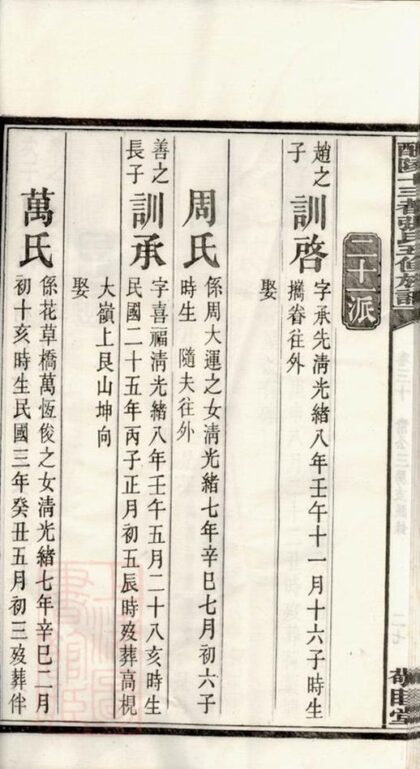 醴陵十三都張氏五修族譜
敬睦堂
二十一派
趙之子
訓啓
字承先清光緒八年壬午十一月十六子時生
攜眷往外
娶
周氏
係周大運之女清光緒七年辛巳七月初六子
時生 隨夫往外
善之長子
訓承
字喜福清光緒八年壬午五月二十八亥時生
民國二十五年丙子正月初五辰時歿葬高梘
大嶺上艮山坤向
娶
萬氏
係花草橋萬恆俊之女清光緒七年辛巳二月
初十亥時生民國三年癸丑五月初三歿葬伴